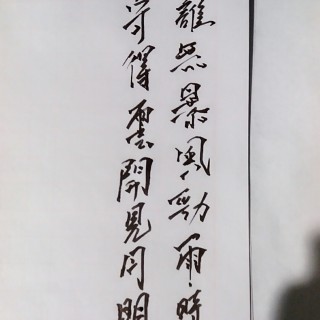 誰無暴風勁雨時
守得雲開見月明